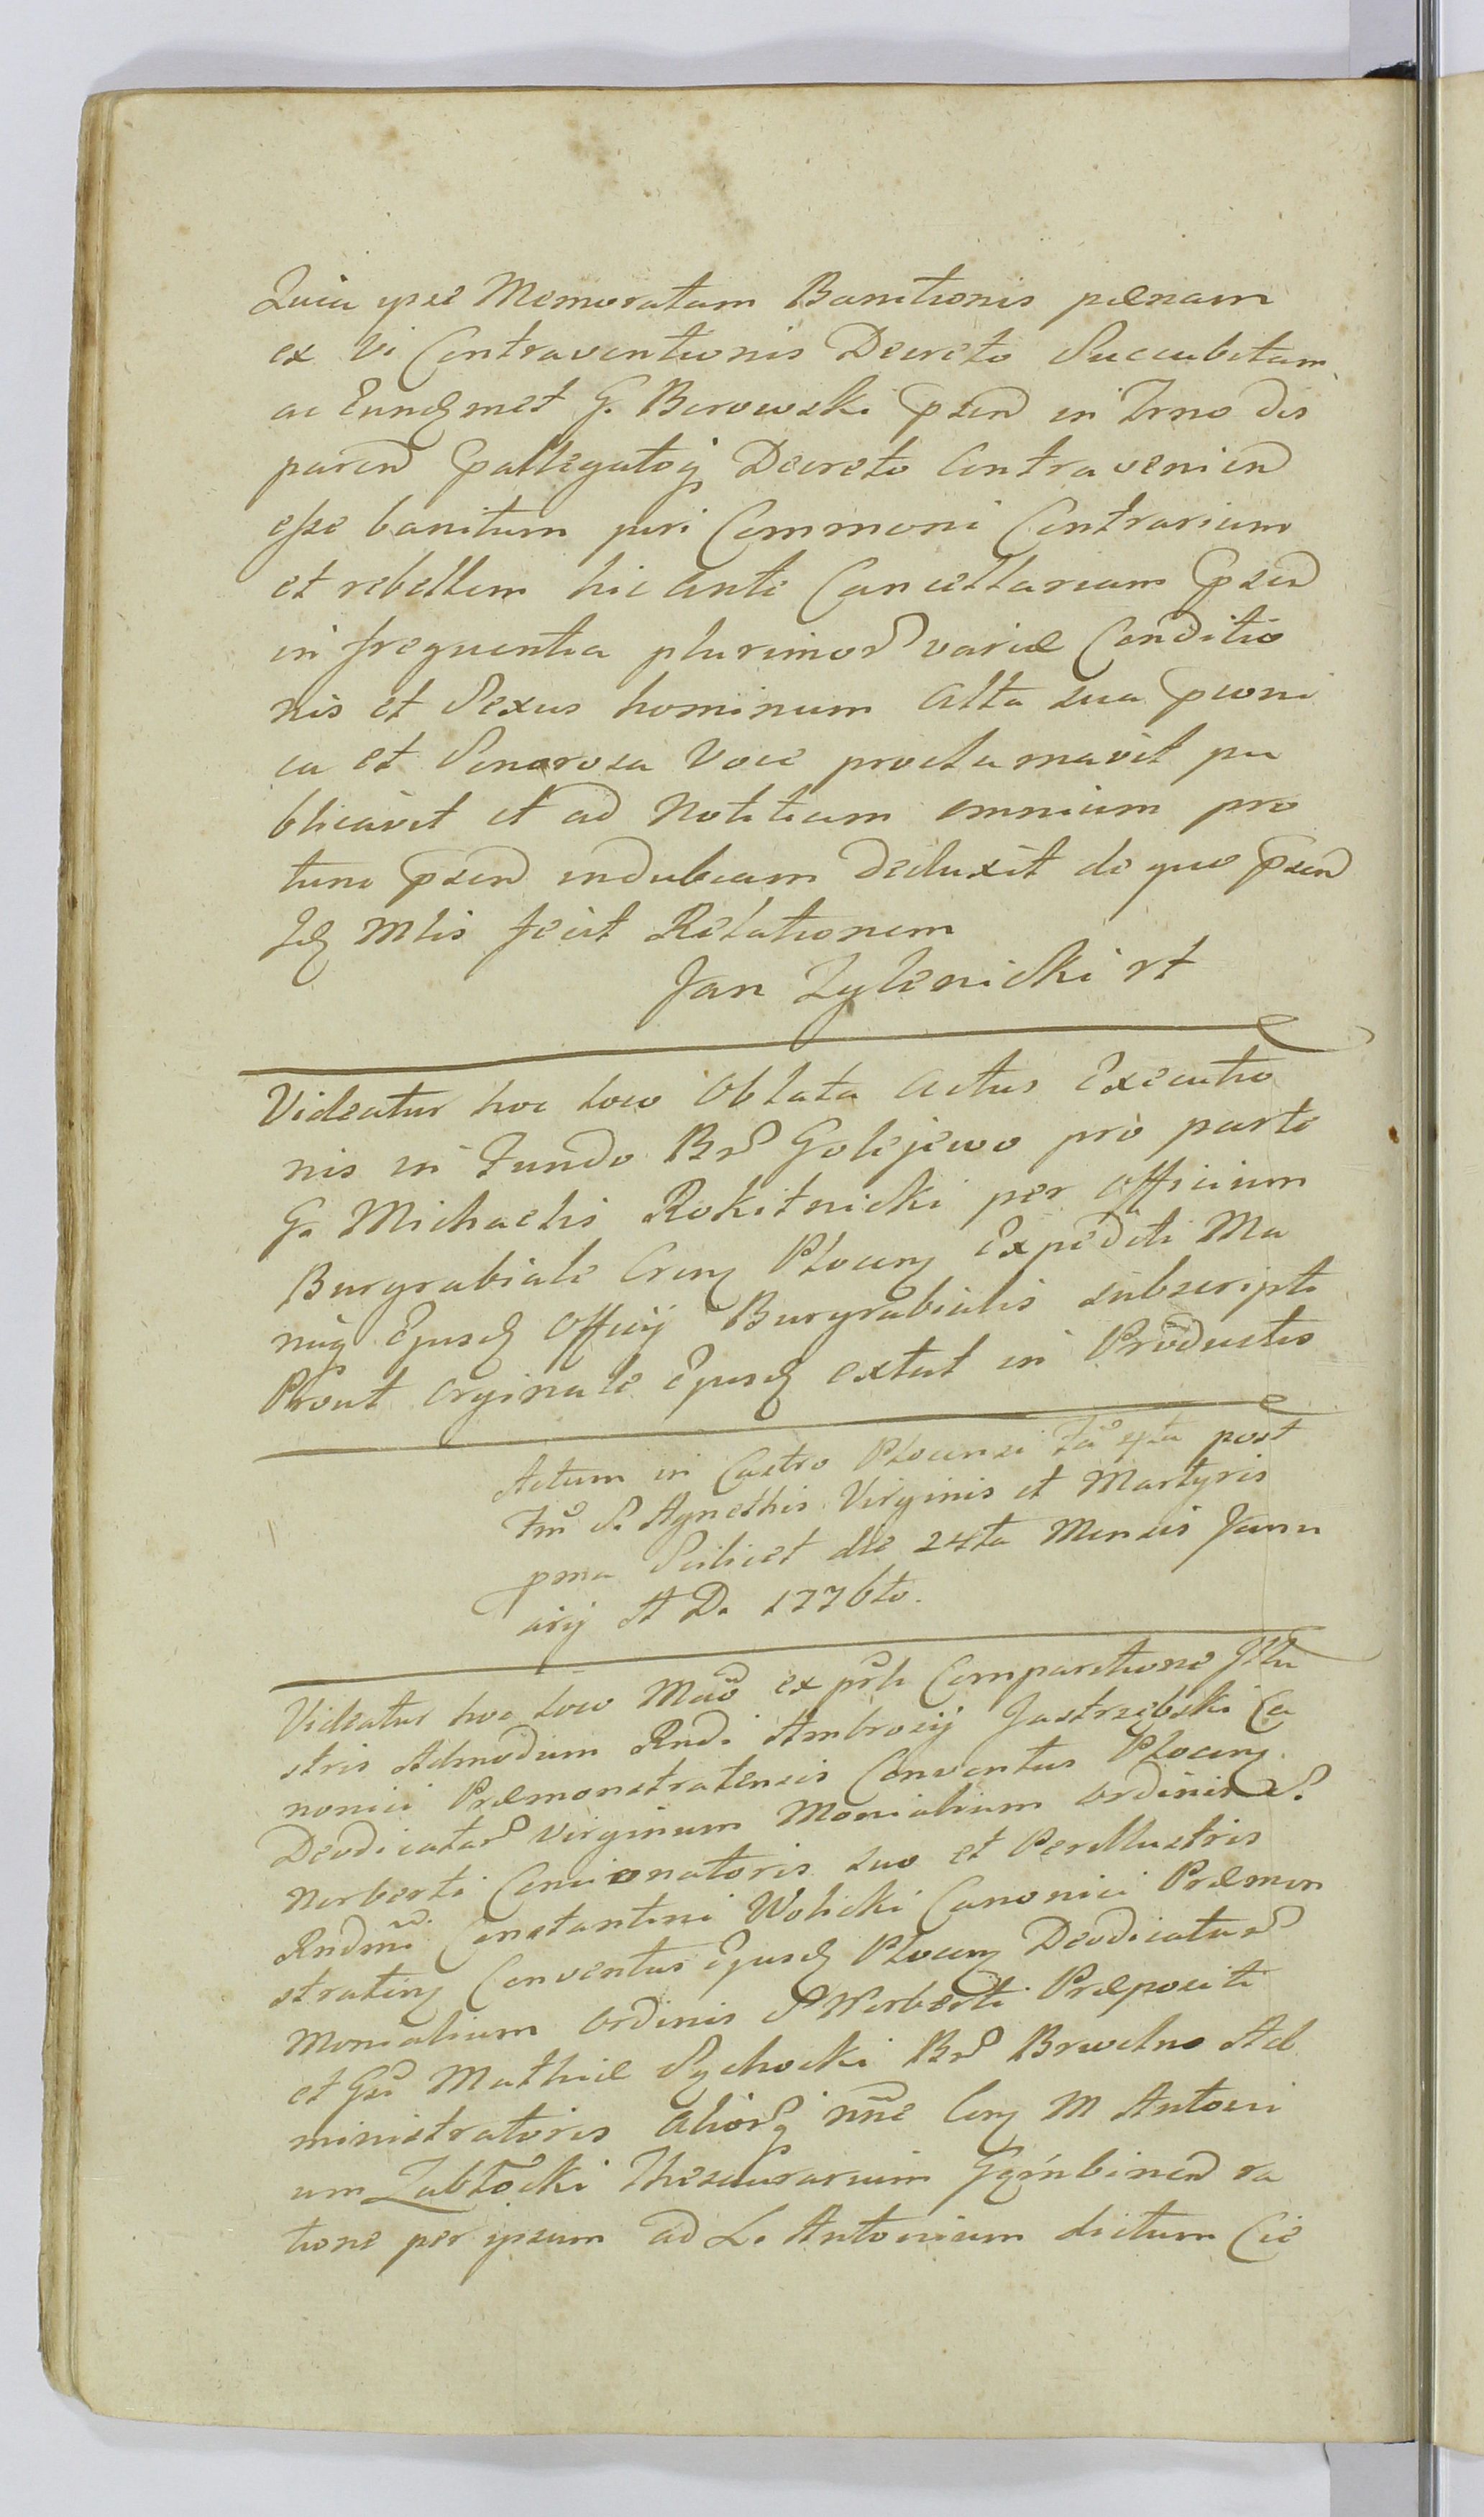 Quia ipse Memoratam Banitionis pœnam
ex vi Contraventionis Decreto Succubitam
ac Eundmet G. Borowski psen in Trno dis
paren pallegatoq Decreto Contravenien
esse banitum juri Commoni Contrarium
et rebellem hic ante Cancellariam psen
in frequentia plurimor variæ Conditio
nis et Sexus hominum Alta sua proni
ca et Sonorosa Voce proclamavit pu
blicavit et ad Notitiam omnium pro
tunc psen indubiam deduxit de quo psen
Id Mlis fecit Relationem
Jan Zylenicki rt
Videatur hoc loco Oblata Actus Executio
nis in Fundo Br Golejewo pro parte
G. Michaelis Rokitnicki per Officium
Burgrabiale Cren Plocen Expediti Ma
nuq Ejusd Officij Burgrabialis subscripti
Prout orginale Ejusd extat in Productis
Actum in Castro Plocensi fa 4ta post
Fm S. Agnethis Virginis et Martyris
pma Scilicet die 24ta Mensis Janu
arij A D. 1776to.
Videatur hoc loco Mao ex prli Comparitione Illu
stris Admodum Rndi Ambrosij Jastrzębski Ca
nonici Præmonstratensis Conventus Plocen
Deodicatar Virginum Monialium Ordinis S.
Norberti Concionatoris suo et Perillustris
Rndmi Constantini Wolicki Canonici Præmon
straten Conventus Ejusd Plocen Deodicatar
Monialium Ordinis S Norberti Præpositi
et Gsi Mathiæ Sychocki Br Brwilno Ad
ministratoris Aliorq nne Con M Antoni
um Zabłocki Thesaurarium Gąmbinen ra
tione per ipsum ad L. Antonium dictum Cie